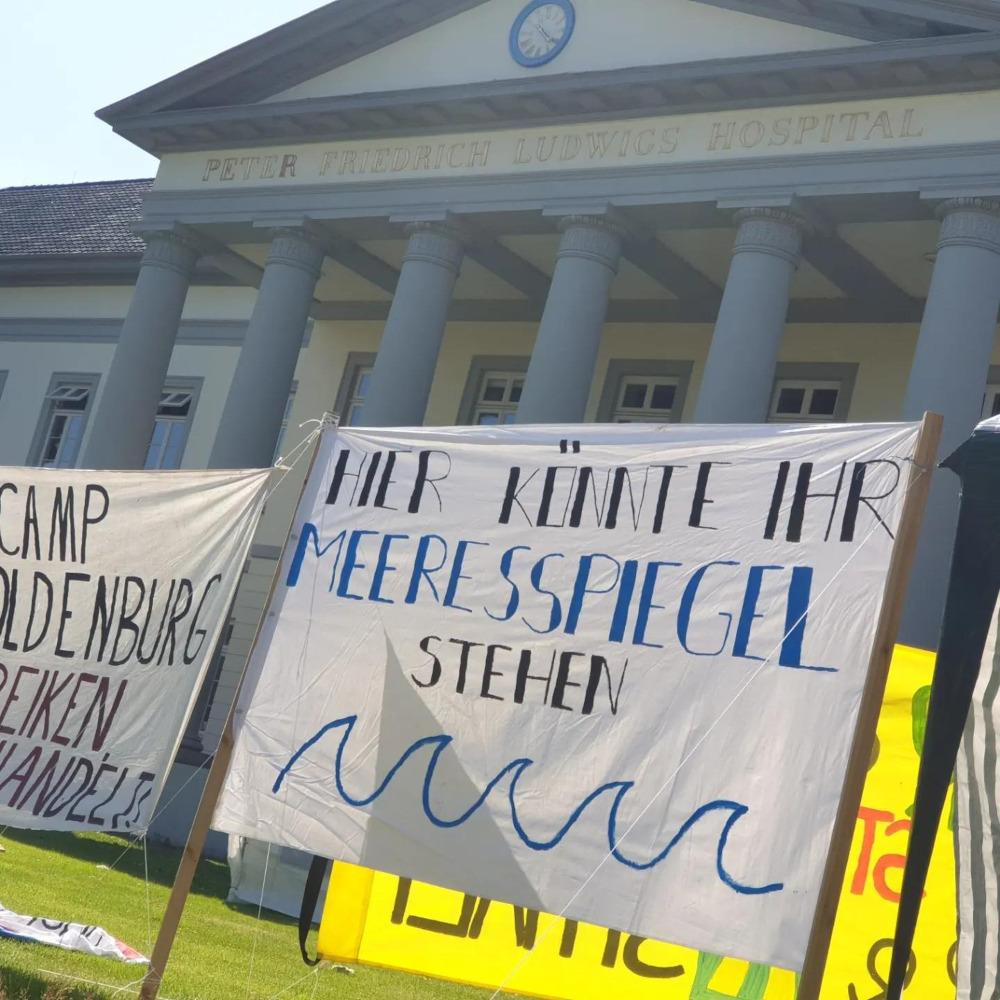 PETER FRIEDRICH LUDWIGS HOSPITAL
HIER KÖNNTE IHR
MEERESSPIEGEL
STEHEN
CAMP
OLDENBURG